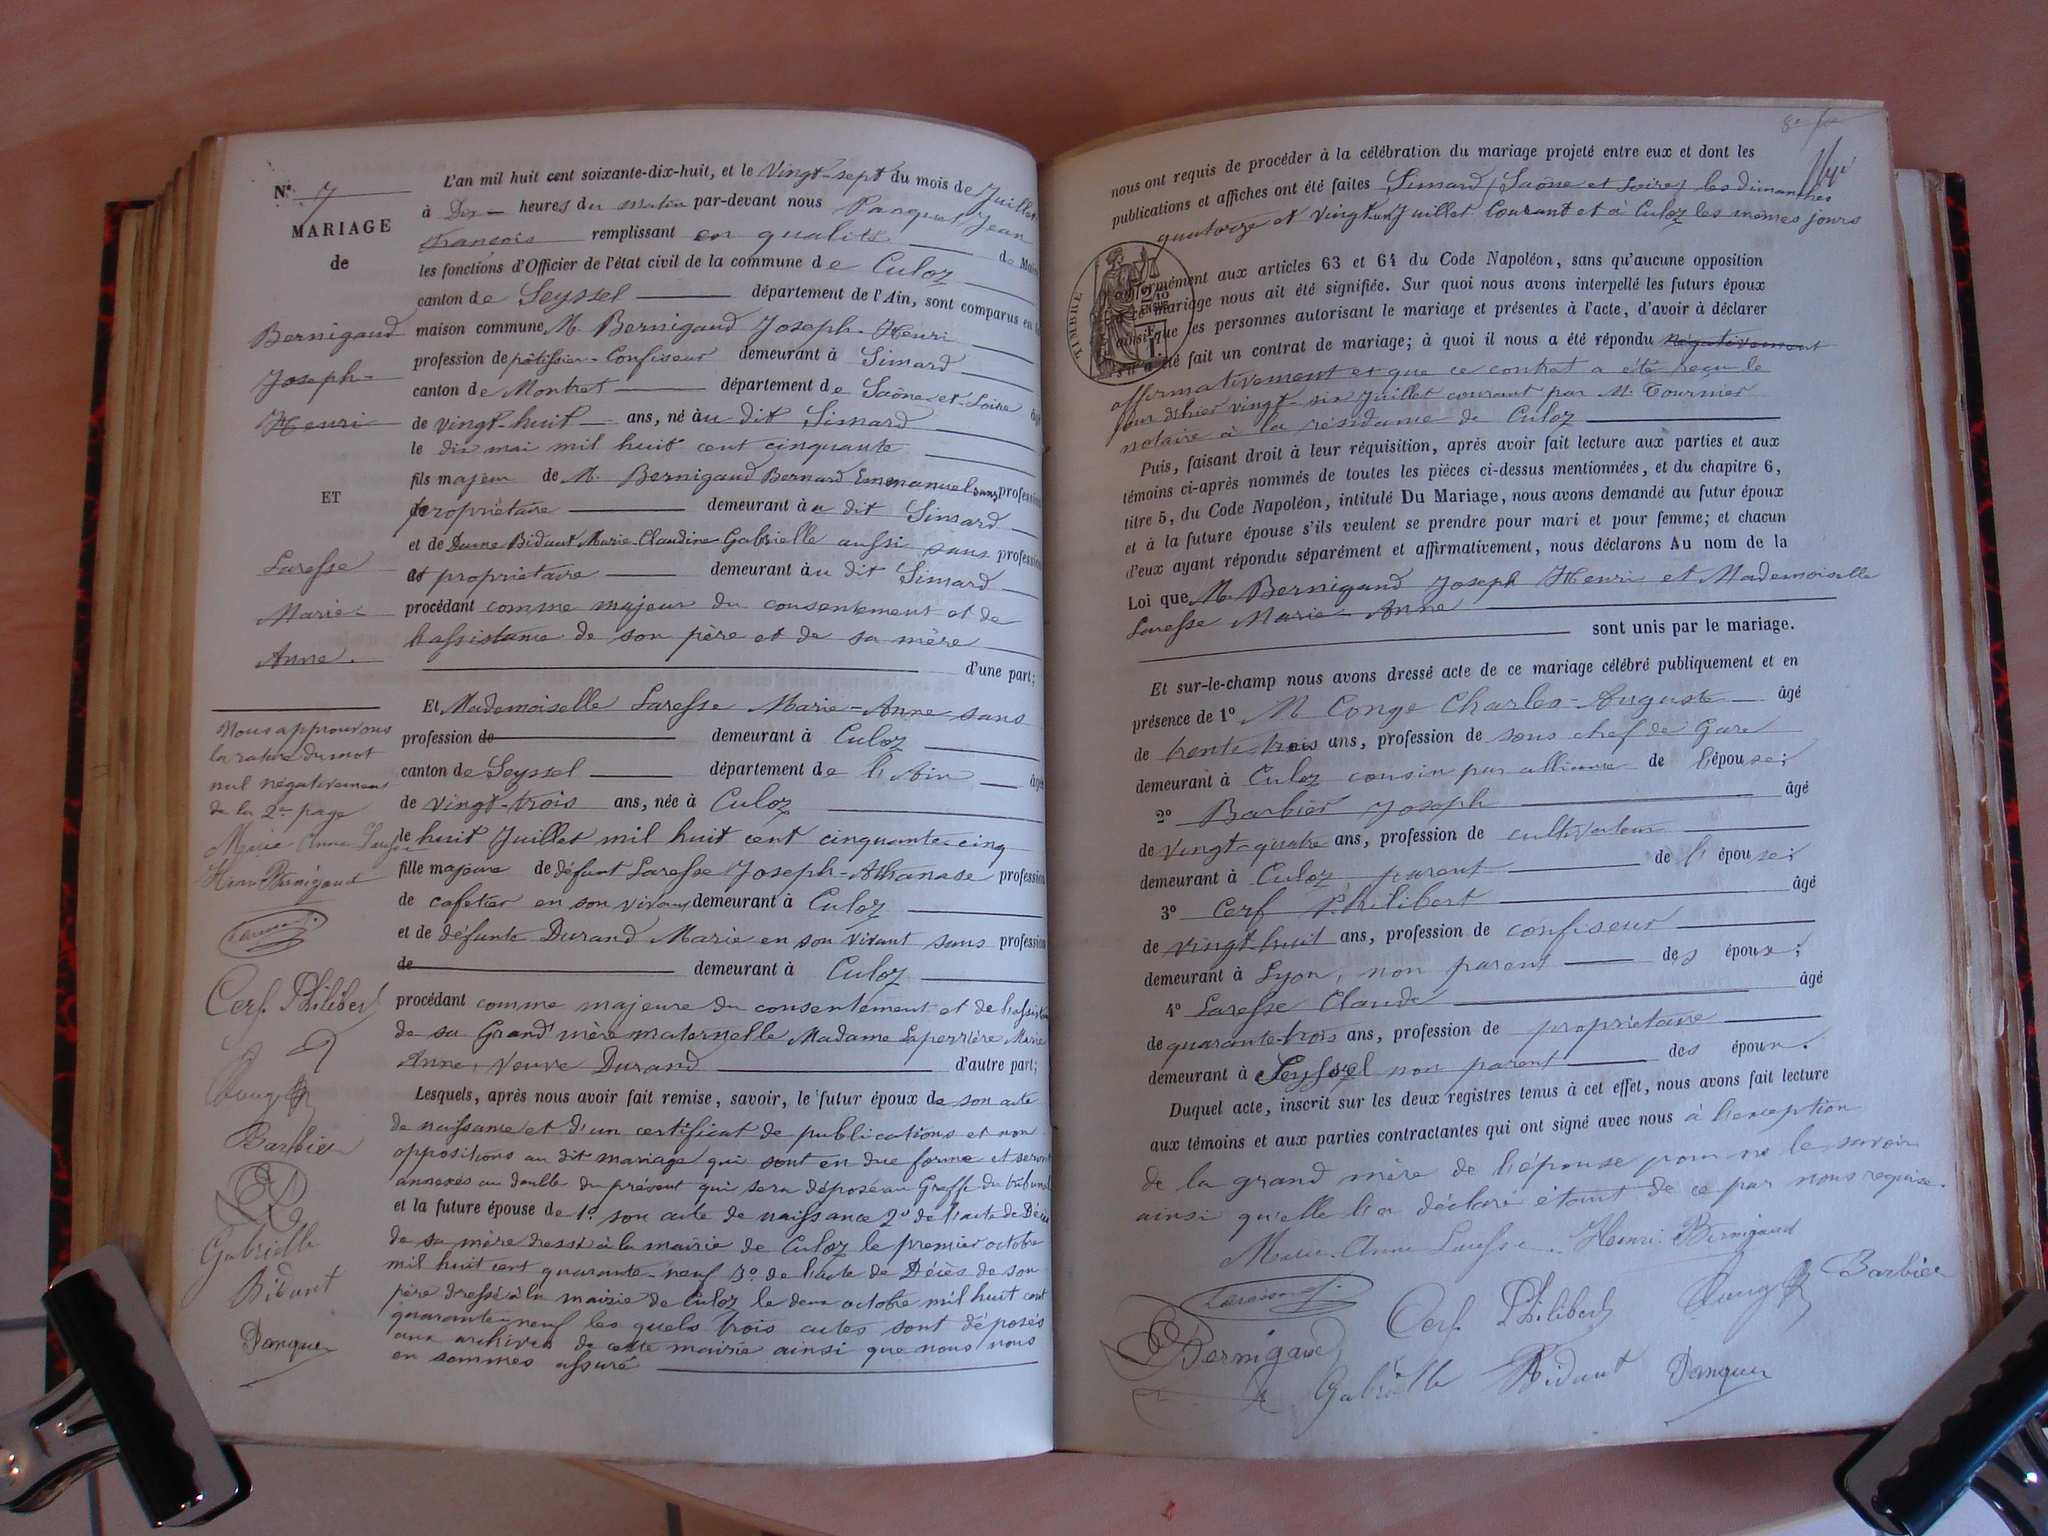 N° 7
MARIAGE
de
Bernigaud
Joseph-
Henri
ET
Laresse
Marie-
Anne.
Nous approuvons
la rature du mot
nul négativement
de la 2me page
Marie Anne Laresse
Henri Bernigaud
Cerf Philibert
Barbier
Gabrielle
Bidaut
L'an mil huit cent soixante-dix-huit, et le Vingt-sept du mois de Juillet
à Dix heures du matin par-devant nous Jean
François remplissant en qualité de Maire
les fonctions d'Officier de l'état civil de la commune de Culoz
canton de Seyssel département de l'Ain, sont comparus en la
maison commune, M. Bernigaud Joseph-Henri
profession de pâtissier-Confiseur demeurant à Simard
canton de Montret département de Saône-et-Loire âgé
de vingt-huit ans, né au dit Simard
le dix mai mil huit cent cinquante
fils majeur de M. Bernigaud Bernard Emmanuel sans profession
propriétaire demeurant au dit Simard
et de Dame Bidaut Marie-Claudine Gabrielle aussi sans profession
et propriétaire demeurant au dit Simard
procédant comme majeur du consentement et de
l'assistance de son père et de sa mère
d'une part;
Et Mademoiselle Laresse Marie-Anne sans
profession de demeurant à Culoz
canton de Seyssel département de l'Ain âgée
de vingt-trois ans, née à Culoz
le huit Juillet mil huit cent cinquante-cinq
fille majeure de défunt Laresse Joseph-Athanase profession
de cafetier en son vivant demeurant à Culoz
et de défunte Durand Marie en son vivant sans profession
de demeurant à Culoz
procédant comme majeure du consentement et de l'assistance
de sa Grand'mère maternelle Madame Laperrière Marie
Anne, Veuve Durand d'autre part;
Lesquels, après nous avoir fait remise, savoir, le futur époux de son acte
de naissance et d'un certificat de publications et non
oppositions au dit mariage qui sont en due forme et seront
annexés au double du présent qui sera déposé au Greffe du tribunal
et la future épouse de 1° son acte de naissance 2° de l'acte de Décès
de sa mère dressé à la mairie de Culoz le premier octobre
mil huit cent quarante-neuf 3° de l'acte de Décès de son
père dressé à la mairie de Culoz le deux octobre mil huit cent
quarante-neuf les quels trois actes sont déposés
aux archives de cette mairie ainsi que nous nous
en sommes assuré
nous ont requis de procéder à la célébration du mariage projeté entre eux et dont les
publications et affiches ont été faites Simard (Saône et Loire) les dimanches
quatorze et Vingt un Juillet Courant et à Culoz les mêmes jours
TIMBRE
conformément aux articles 63 et 64 du Code Napoléon, sans qu'aucune opposition
à ce mariage nous ait été signifiée. Sur quoi nous avons interpellé les futurs époux
ainsi que les personnes autorisant le mariage et présentes à l'acte, d'avoir à déclarer
s'il a été fait un contrat de mariage; à quoi il nous a été répondu négativement
affirmativement et que ce contrat a été reçu le
jour d'hier vingt-six Juillet courant par M. Tournier
notaire à la résidence de Culoz
Puis, faisant droit à leur réquisition, après avoir fait lecture aux parties et aux
témoins ci-après nommés de toutes les pièces ci-dessus mentionnées, et du chapitre 6,
titre 5, du Code Napoléon, intitulé Du Mariage, nous avons demandé au futur époux
et à la future épouse s'ils veulent se prendre pour mari et pour femme; et chacun
d'eux ayant répondu séparément et affirmativement, nous déclarons Au nom de la
Loi que M. Bernigaud Joseph Henri et Mademoiselle
Laresse Marie-Anne
sont unis par le mariage.
Et sur-le-champ nous avons dressé acte de ce mariage célébré publiquement et en
présence de 1° M Conge Charles-Auguste âgé
de trente-trois ans, profession de sous chef de Gare
demeurant à Culoz cousin par alliance de l'épouse;
2° Barbier Joseph âgé
de vingt-quatre ans, profession de cultivateur
demeurant à Culoz, parent de l'épouse;
3° Cerf Philibert âgé
de vingt-huit ans, profession de confiseur
demeurant à Lyon, non parent des époux;
4° Laresse Claude âgé
de quarante-trois ans, profession de propriétaire
demeurant à Seyssel non parent des époux.
Duquel acte, inscrit sur les deux registres tenus à cet effet, nous avons fait lecture
aux témoins et aux parties contractantes qui ont signé avec nous à l'exception
de la grand mère de l'épouse pour ne le savoir
ainsi qu'elle l'a déclaré étant de ce par nous requise.
Marie-Anne Laresse Henri Bernigaud
Cerf Philibert Barbier
Bernigaud
Gabrielle Bidaut